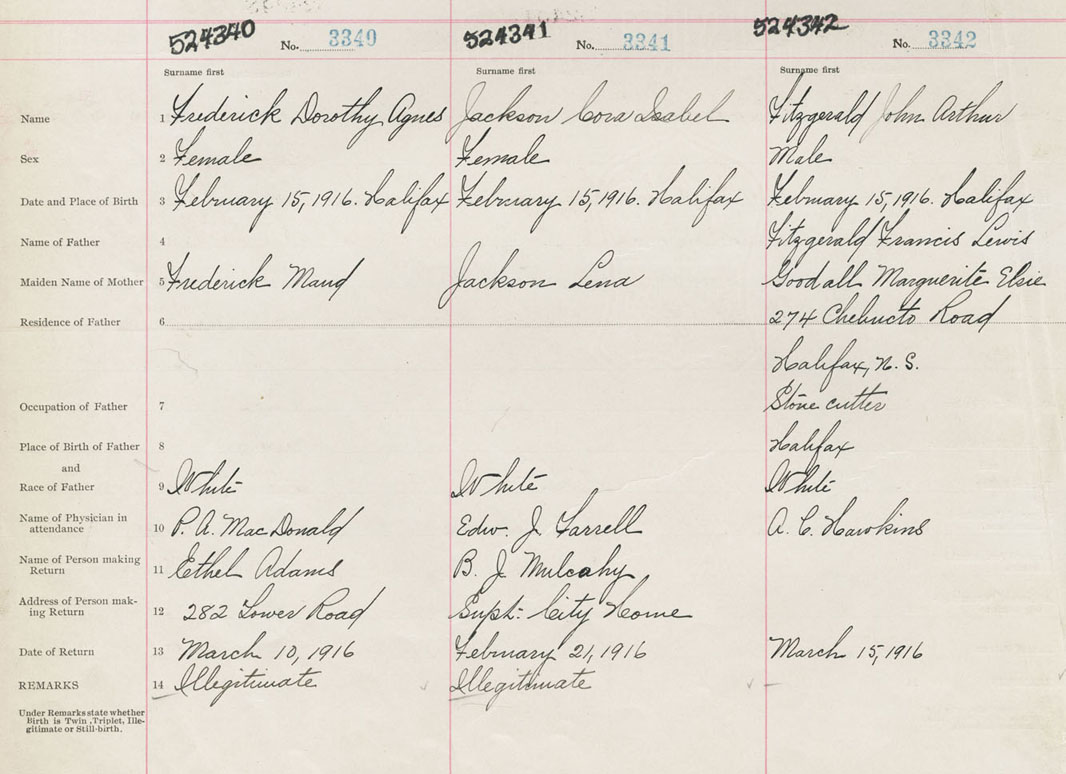 524340 No. 3340 524341 No. 3341 524342 No. 3342
Surname first Surname first Surname first
Name 1 Frederick Dorothy Agnes Jackson Cora Isabel Fitzgerald John Arthur
Sex 2 Female Female Male
Date and Place of Birth 3 February 15, 1916. Halifax February 15, 1916. Halifax February 15, 1916. Halifax
Name of Father 4 Fitzgerald Francis Lewis
Maiden Name of Mother 5 Frederick Maud Jackson Lena Goodall Marguerite Elsie
Residence of Father 6 274 Chebucto Road
Halifax, N. S.
Occupation of Father 7 Stone cutter
Place of Birth of Father 8 Halifax
and
Race of Father 9 White White White
Name of Physician in
attendance 10 P. A. MacDonald Edw. J. Farrell A. C. Hawkins
Name of Person making
Return 11 Ethel Adams B. J. Mulcahy
Address of Person mak-
ing Return 12 282 Lower Road Supt. City Home
Date of Return 13 March 10, 1916 February 21, 1916 March 15, 1916
REMARKS 14 Illegitimate Illegitimate —
Under Remarks state whether
Birth is Twin, Triplet, Ille-
gitimate or Still-birth.